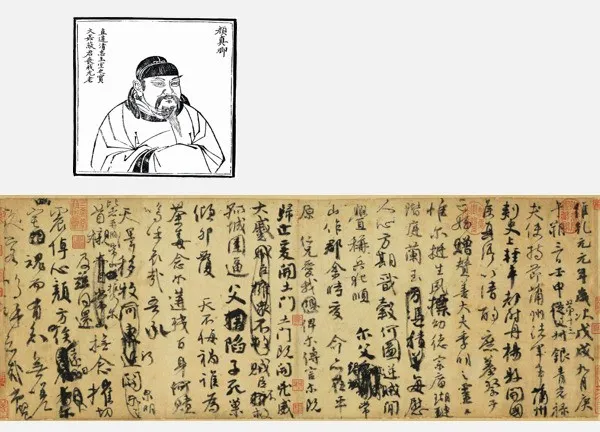 顏真卿
維乾元元年歲次戊戌九月庚
午朔三日壬申第十三叔銀青光祿
夫使持節蒲州諸軍事蒲州
刺史上輕車都尉丹楊縣開國
侯真卿以清酌庶羞祭于
亡姪贈贊善大夫季明之靈曰
惟爾挺生夙標幼德宗廟瑚璉
階庭蘭玉每慰
人心方期戩穀何圖逆賊閒
釁稱兵犯順爾父竭誠常
山作郡余時受命亦在平
原仁兄愛我俾爾傳言爾既
歸止爰開土門土門既開凶威
大蹙賊臣不救
孤城圍逼父陷子死巢
傾卵覆天不悔禍誰為
荼毒念爾遘殘百身何贖
嗚呼哀哉吾承
天澤移牧河關爾明
比者再陷常山攜爾
首櫬及茲同還撫念摧切
震悼心顏方俟遠日
魂而有知無嗟
久客嗚呼哀哉尚饗